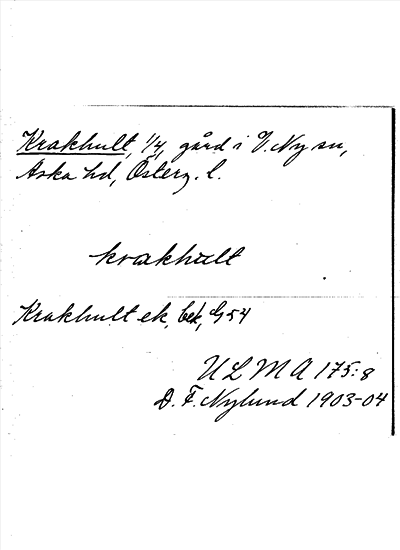 Krakhult, 1/4, gård i V. Ny sn,
Aska hd, Österg. l.
krakhult
Krakhult ek, bek, G54
ULMA 175:8
D. F. Nylund 1903-04